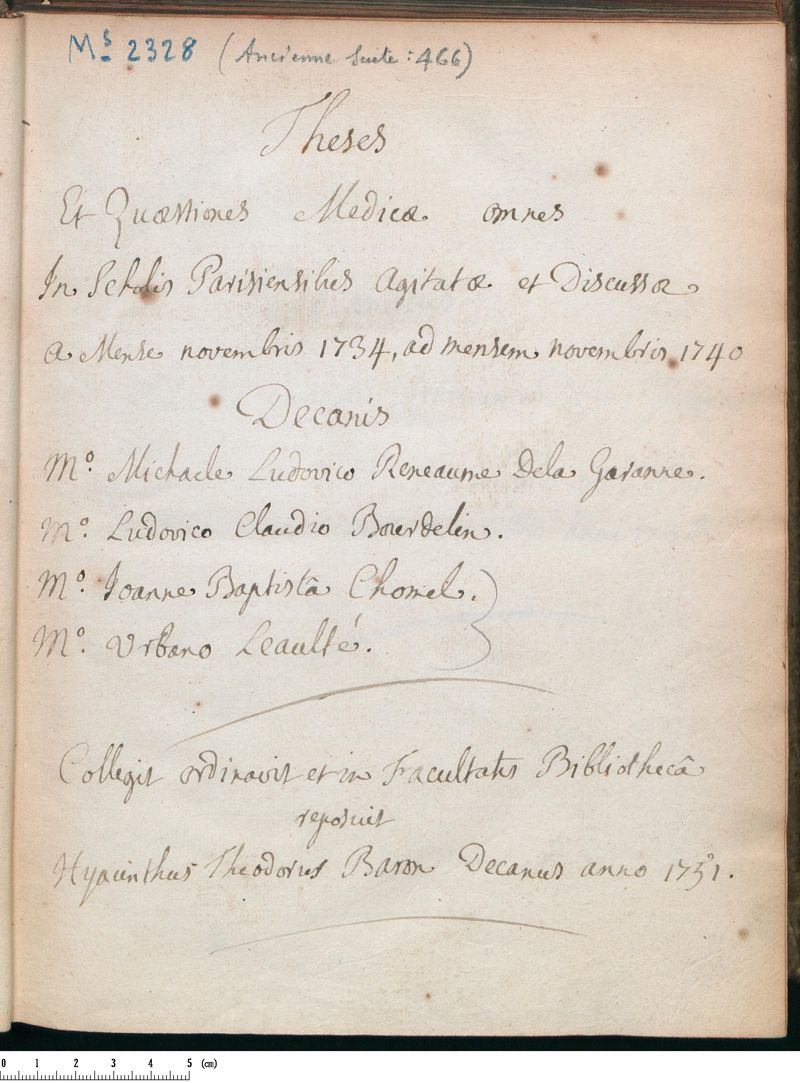 Ms 2328 (Ancienne suite : 466)
Theses
Et Quæstiones Medicæ omnes
In Scholis Parisiensibus Agitatæ et Discussæ
a Mense novembris 1734, ad mensem novembris 1740
Decanis
Mo. Michaele Ludovico Reneaume Dela Garanne.
Mo. Ludovico Claudio Bourdelin.
Mo. Ioanne Baptistâ Chomel.
Mo. Urbano Leaulté.
Collegit ordinavit et in Facultatis Bibliothecâ
reposuit
Hyacinthus Theodorus Baron Decanus anno 1751.
0 1 2 3 4 5 (cm)